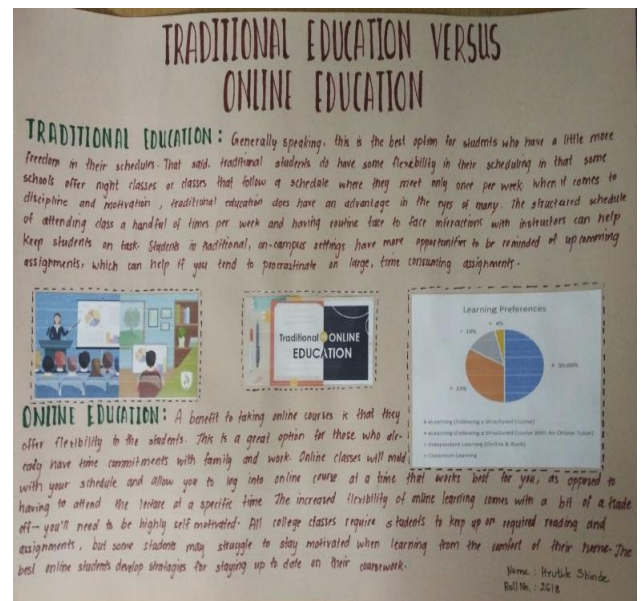 TRADITIONAL EDUCATION VERSUS
ONLINE EDUCATION
TRADITIONAL EDUCATION : Generally speaking, this is the best option for students who have a little more
freedom in their schedules. That said, traditional students do have some flexibility in their scheduling in that some
schools offer night classes or classes that follow a schedule where they meet only once per week when it comes to
discipline and motivation , traditional education does have an advantage in the eyes of many. The structured schedule
of attending class a handful of times per week and having routine face to face with instructors can help
keep students on task. Students in traditional, on-campus settings have more opportunities to be reminded of upcomming
assignments, which can help if you tend to procrastinate on large, time consuming assignments.
Traditional ONLINE
EDUCATION
Learning Preferences
4%
50.00%
eLearning (Following a Structured Course)
eLearning (Following a Structured Course With An Online Tutor)
Independent Learning (Online & Book)
Classroom Learning
ONLINE EDUCATION: A benefit to taking online courses is that they
offer flexibility to the students. This is a great option for those who alr-
eady have time commitments with family and work. Online classes will mold
with your schedule and allow you to log into online course at a time that works best for you, as opposed to
having to attend the lecture at a specific time The increased flexibility of online learning comes with a bit of a trade
off- you'll need to be highly self motivated. All college classes require students to keep up on required reading and
assignments, but some students may struggle to stay motivated when learning from the comfort of their home. The
best online students develop strategies for staying up to date on their coursework.
Name : Hrutik Shinde
Roll No. : 2618